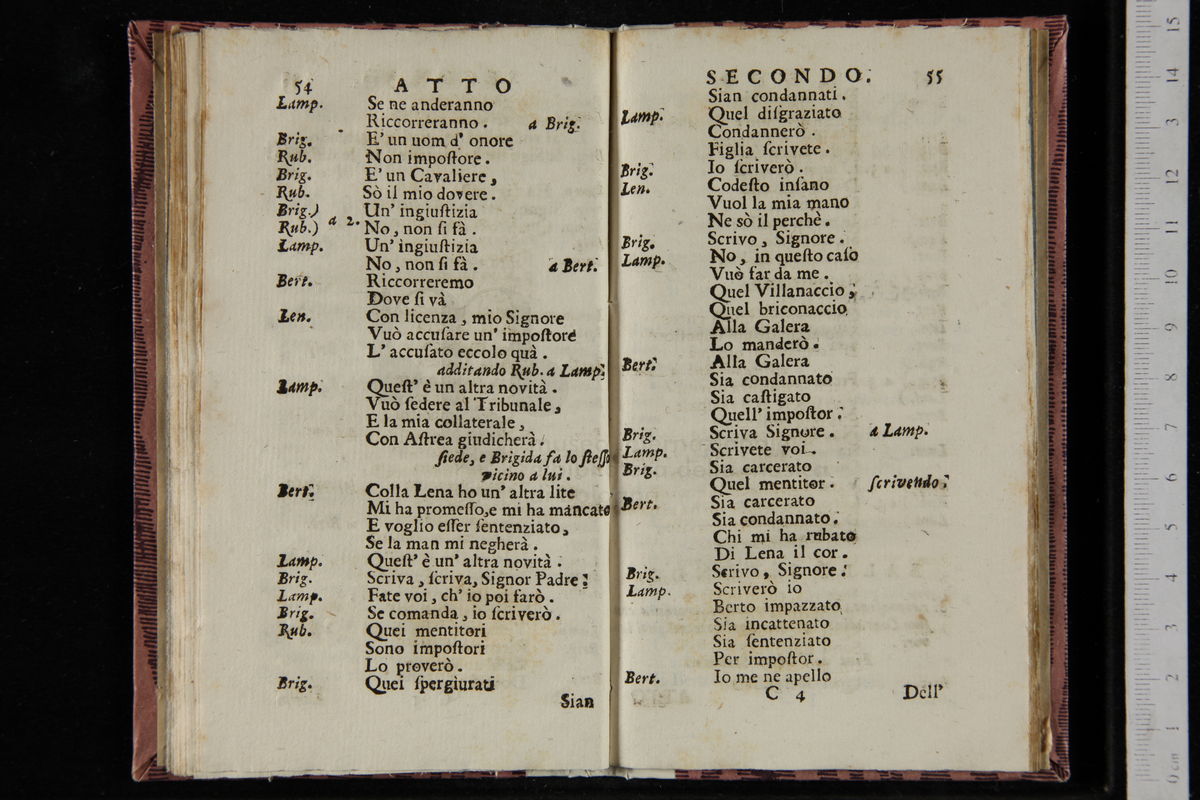 54 ATTO
Lamp. Se ne anderanno
Riccorreranno. a Brig.
Brig. E' un uom d' onore
Rub. Non impoſtore.
Brig. E' un Cavaliere,
Rub. Sò il mio dovere.
Brig.) Un' ingiuſtizia
a 2.
Rub.) No, non ſi fà.
Lamp. Un' ingiuſtizia
No, non ſi fà. a Bert.
Bert. Riccorreremo
Dove ſi và
Len. Con licenza, mio Signore
Vuò accuſare un' impoſtore
L' accuſato eccolo quà.
additando Rub. a Lamp.
Lamp. Queſt' è un altra novità.
Vuò ſedere al Tribunale,
E la mia collaterale,
Con Aſtrea giudicherà.
ſiede, e Brigida fa lo ſteſſo
vicino a lui.
Bert. Colla Lena ho un' altra lite
Mi ha promeſſo,e mi ha mancato
E voglio eſſer ſentenziato,
Se la man mi negherà.
Lamp. Queſt' è un' altra novità.
Brig. Scriva, ſcriva, Signor Padre.
Lamp. Fate voi, ch' io poi farò.
Brig. Se comanda, io ſcriverò.
Rub. Quei mentitori
Sono impoſtori
Lo proverò.
Brig. Quei ſpergiurati
Sian
SECONDO. 55
Sian condannati.
Lamp. Quel diſgraziato
Condannerò.
Figlia ſcrivete.
Brig. Io ſcriverò.
Len. Codeſto inſano
Vuol la mia mano
Ne sò il perchè.
Brig. Scrivo, Signore.
Lamp. No, in queſto caſo
Vuò far da me.
Quel Villanaccio,
Quel briconaccio
Alla Galera
Lo manderò.
Bert. Alla Galera
Sia condannato
Sia caſtigato
Quell' impoſtor.
Brig. Scriva Signore. a Lamp.
Lamp. Scrivete voi.
Brig. Sia carcerato
Quel mentitor. ſcrivendo.
Bert. Sia carcerato
Sia condannato.
Chi mi ha rubato
Di Lena il cor.
Brig. Scrivo, Signore.
Lamp. Scriverò io
Berto impazzato
Sia incattenato
Sia ſentenziato
Per impoſtor.
Bert. Io me ne apello
C 4 Dell'
0 cm 1 2 3 4 5 6 7 8 9 10 11 12 3 14 15